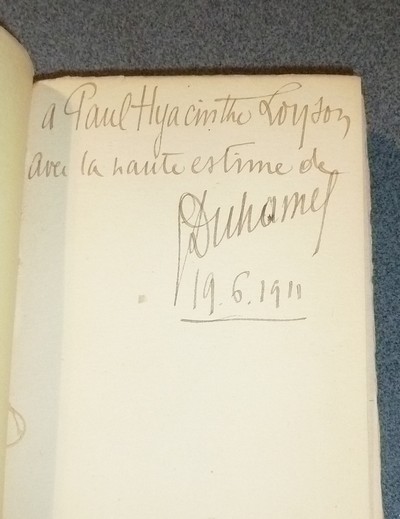 a Paul Hyacinthe Loyson
avec la haute estime de
GDuhamel
19.6.1911